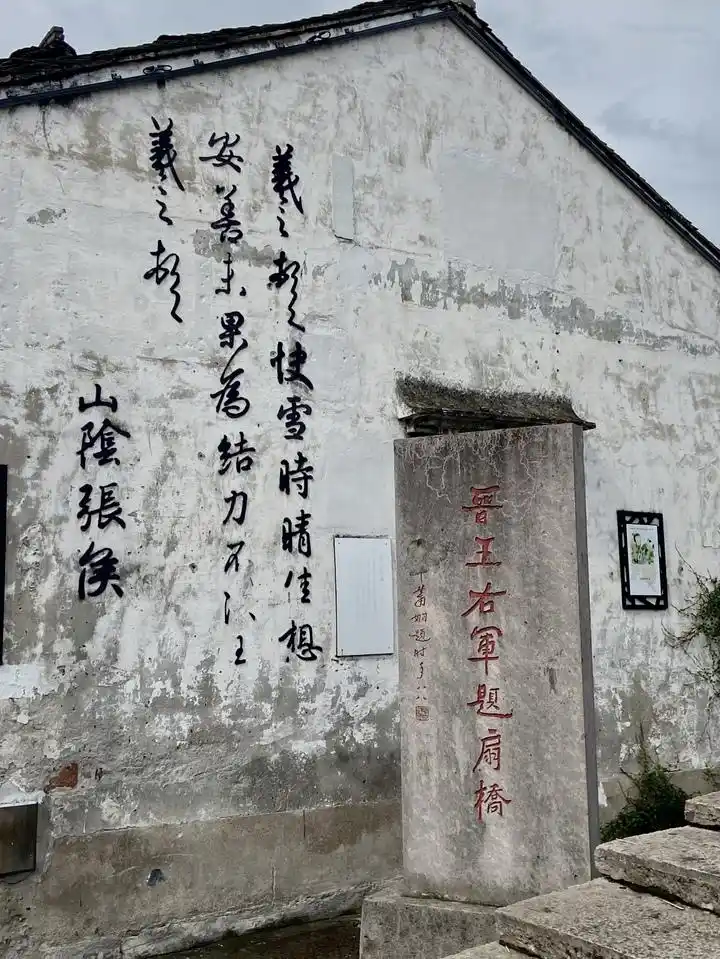 羲之頓首快雪時晴佳想
安善未果為結力不次王
羲之頓首
山陰張侯
晉王右軍題扇橋
題时年八八